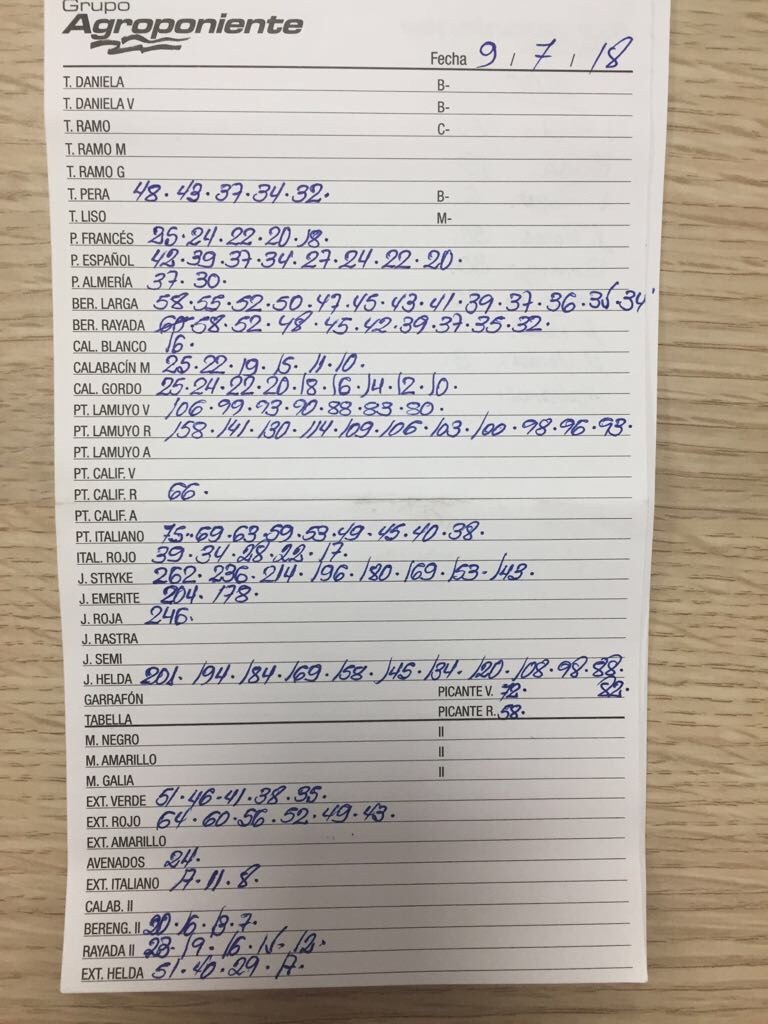 Grupo
Agroponiente
Fecha 9 / 7 / 18
T. DANIELA B-
T. DANIELA V B-
T. RAMO C-
T. RAMO M
T. RAMO G
T. PERA 48·43·37·34·32· B-
T. LISO M-
P. FRANCÉS 25·24·22·20·18·
P. ESPAÑOL 42·39·37·34·27·24·22·20·
P. ALMERÍA 37·30·
BER. LARGA 58·55·52·50·47·45·43·41·39·37·36·35·34·
BER. RAYADA 60·58·52·48·45·42·39·37·35·32·
CAL. BLANCO 16·
CALABACÍN M 25·22·19·15·11·10·
CAL. GORDO 25·24·22·20·18·16·14·12·10·
PT. LAMUYO V 106·99·93·90·88·83·80·
PT. LAMUYO R 158·141·130·114·109·106·103·100·98·96·93·
PT. LAMUYO A
PT. CALIF. V
PT. CALIF. R 66·
PT. CALIF. A
PT. ITALIANO 75·69·63·59·53·49·45·40·38·
ITAL. ROJO 39·34·28·22·17·
J. STRYKE 262·236·214·196·180·169·153·143·
J. EMERITE 204·178·
J. ROJA 246·
J. RASTRA
J. SEMI
J. HELDA 201·194·184·169·158·145·134·120·108·98·88·
GARRAFÓN PICANTE V. 72· 82·
TABELLA PICANTE R. 58·
M. NEGRO II
M. AMARILLO II
M. GALIA II
EXT. VERDE 51·46·41·38·35·
EXT. ROJO 64·60·56·52·49·43·
EXT. AMARILLO
AVENADOS 24·
EXT. ITALIANO 17·11·8·
CALAB. II
BERENG. II 20·16·13·7·
RAYADA II 23·19·16·15·12·
EXT. HELDA 51·40·29·17·